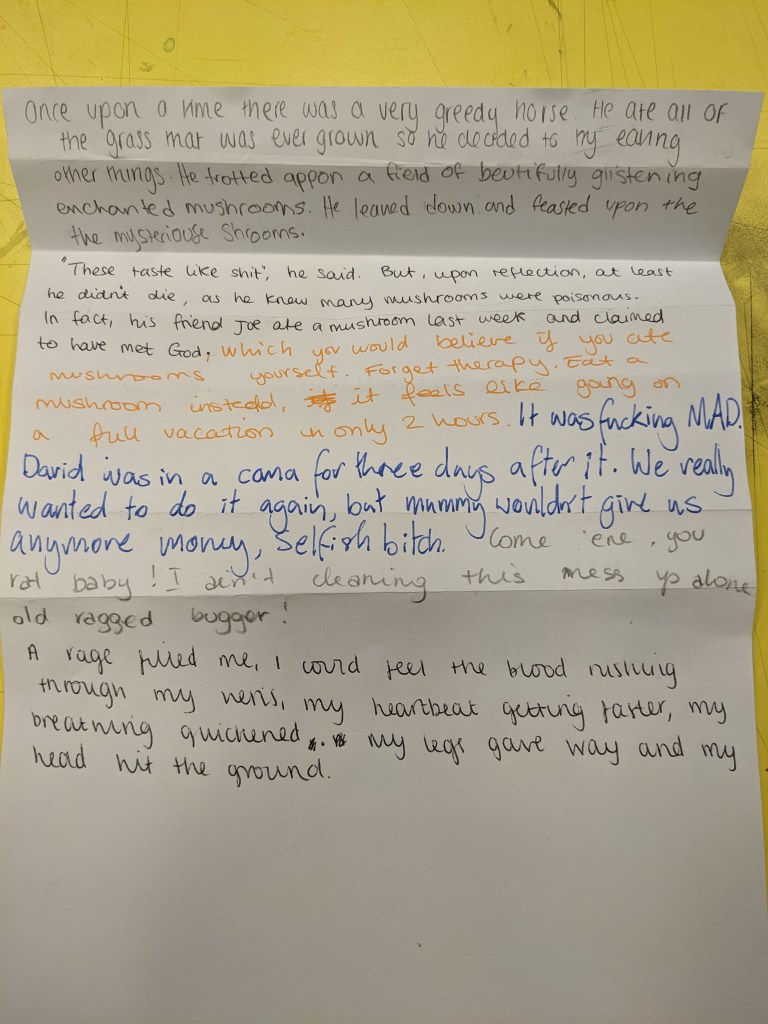 Once upon a time there was a very greedy horse. He ate all of
the grass that was ever grown so he decided to try eating
other things. He trotted appon a field of beutifully glistening
enchanted mushrooms. He leaned down and feasted upon the
the mysteriouse shrooms.
"These taste like shit", he said. But, upon reflection, at least
he didn't die, as he knew many mushrooms were poisonous.
In fact, his friend Joe ate a mushroom last week and claimed
to have met God, which you would believe if you ate
mushrooms yourself. Forget therapy. Eat a
mushroom instedd, it feels like going on
a full vacation in only 2 hours. It was fucking MAD.
David was in a coma for three days after it. We really
wanted to do it again, but mummy wouldn't give us
anymore money, Selfish bitch. Come 'ere, you
rat baby! I ain't cleaning this mess up alone
old ragged bugger!
A rage filled me, I could feel the blood rushing
through my veins, my heartbeat getting faster, my
breathing quickened. My legs gave way and my
head hit the ground.